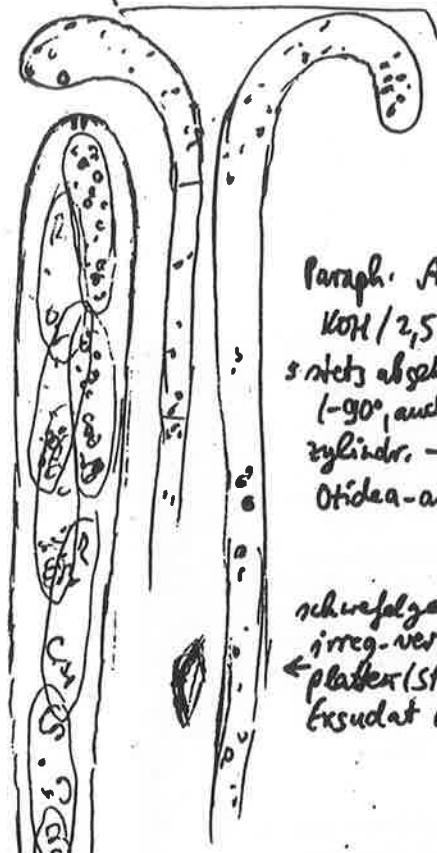 Paraph.
KOH / 2,5
stets
(-90°, auch
zylindr. -
Otidea-a
schwefelge
irreg.-ver
platten (St
Exsudat